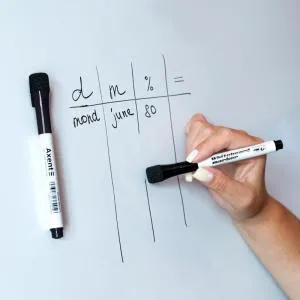 d m % =
mond june 80
Axent
Whiteboard